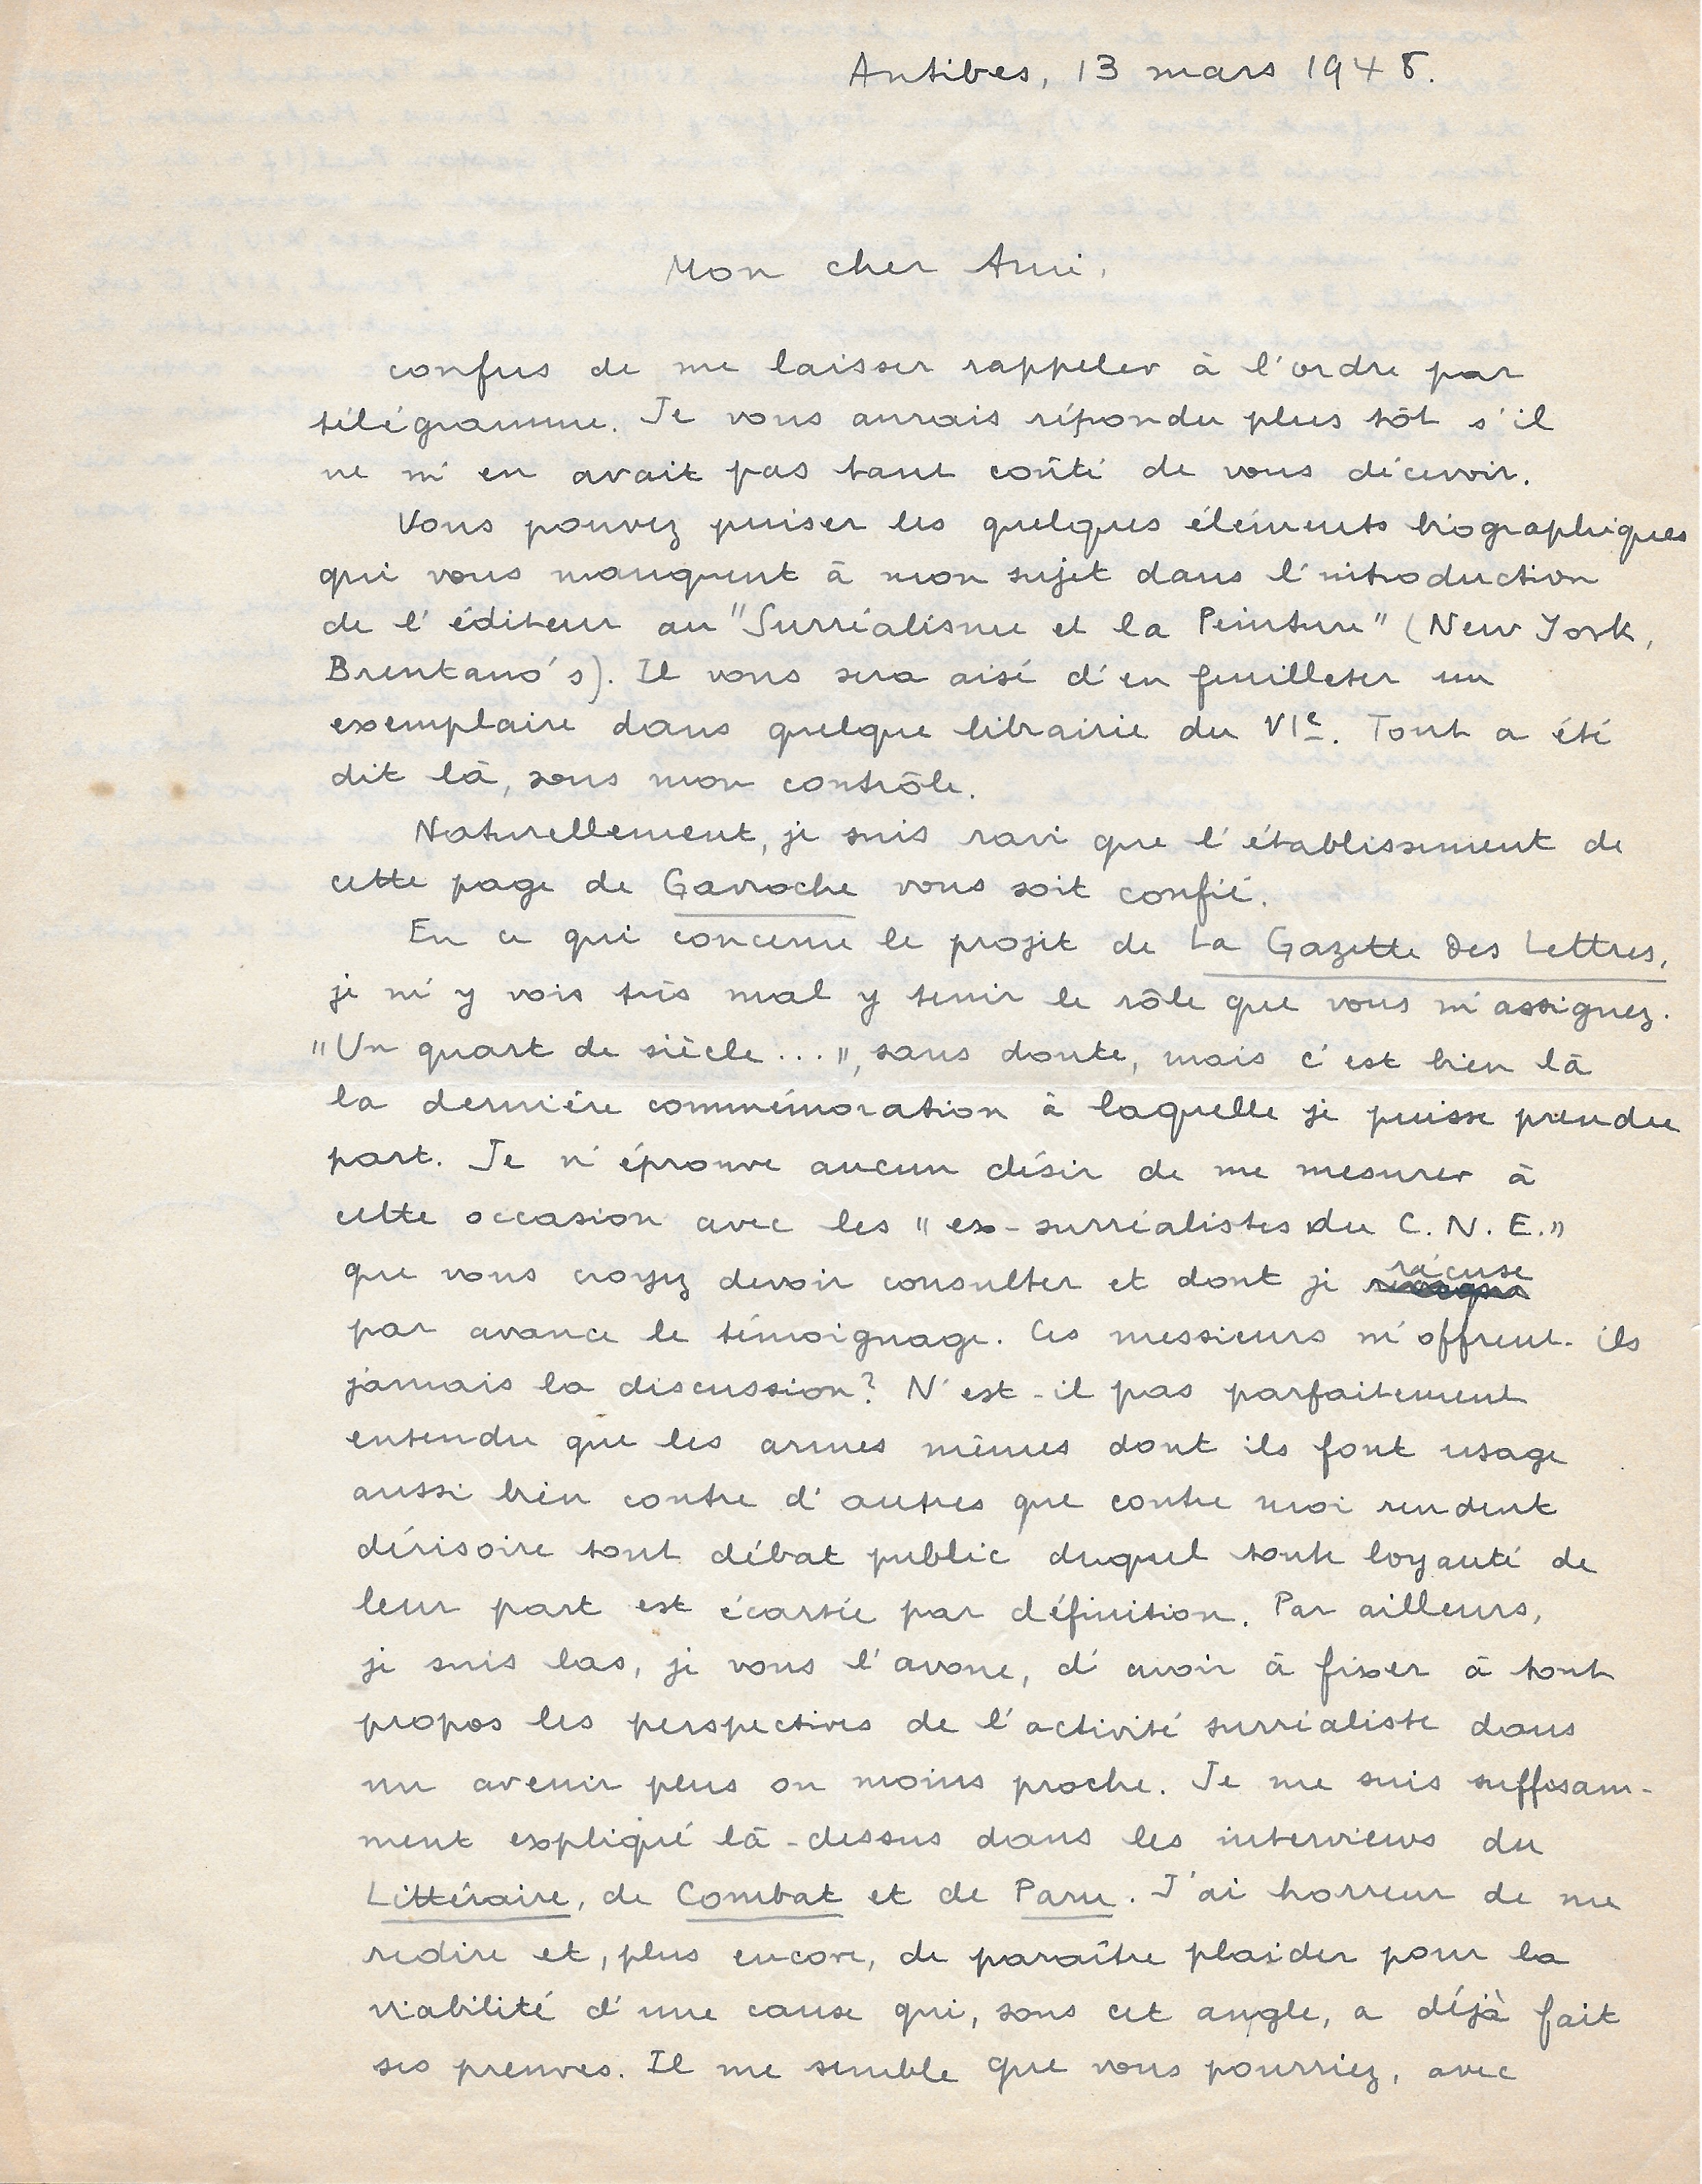 Antibes, 13 mars 1948.
Mon cher Ami,
confus de me laisser rappeler à l'ordre par
télégramme. Je vous aurais répondu plus tôt s'il
ne m'en avait pas tant coûté de vous décevoir.
Vous pouvez puiser les quelques éléments biographiques
qui vous manquent à mon sujet dans l'introduction
de l'éditeur au "Surréalisme et la Peinture" (New York,
Brentano's). Il vous sera aisé d'en feuilleter un
exemplaire dans quelque librairie du VIe. Tout a été
dit là, sous mon contrôle.
Naturellement, je suis ravi que l'établissement de
cette page de Gavroche vous soit confié.
En ce qui concerne le projet de La Gazette des Lettres,
je m'y vois très mal y tenir le rôle que vous m'assignez.
"Un quart de siècle...", sans doute, mais c'est bien là
la dernière commémoration à laquelle je puisse prendre
part. Je n'éprouve aucun désir de me mesurer à
cette occasion avec les "ex-surréalistes du C.N.E."
que vous croyez devoir consulter et dont je récuse
par avance le témoignage. Ces messieurs m'offrent-ils
jamais la discussion? N'est-il pas parfaitement
entendu que les armes mêmes dont ils font usage
aussi bien contre d'autres que contre moi rendent
dérisoire tout débat public duquel toute loyauté de
leur part est écartée par définition. Par ailleurs,
je suis las, je vous l'avoue, d'avoir à fixer à tout
propos les perspectives de l'activité surréaliste dans
un avenir plus ou moins proche. Je me suis suffisam-
ment expliqué là-dessus dans les interviews du
Littéraire, de Combat et de Paru. J'ai horreur de me
redire et, plus encore, de paraître plaider pour la
viabilité d'une cause qui, sous cet angle, a déjà fait
ses preuves. Il me semble que vous pourriez, avec